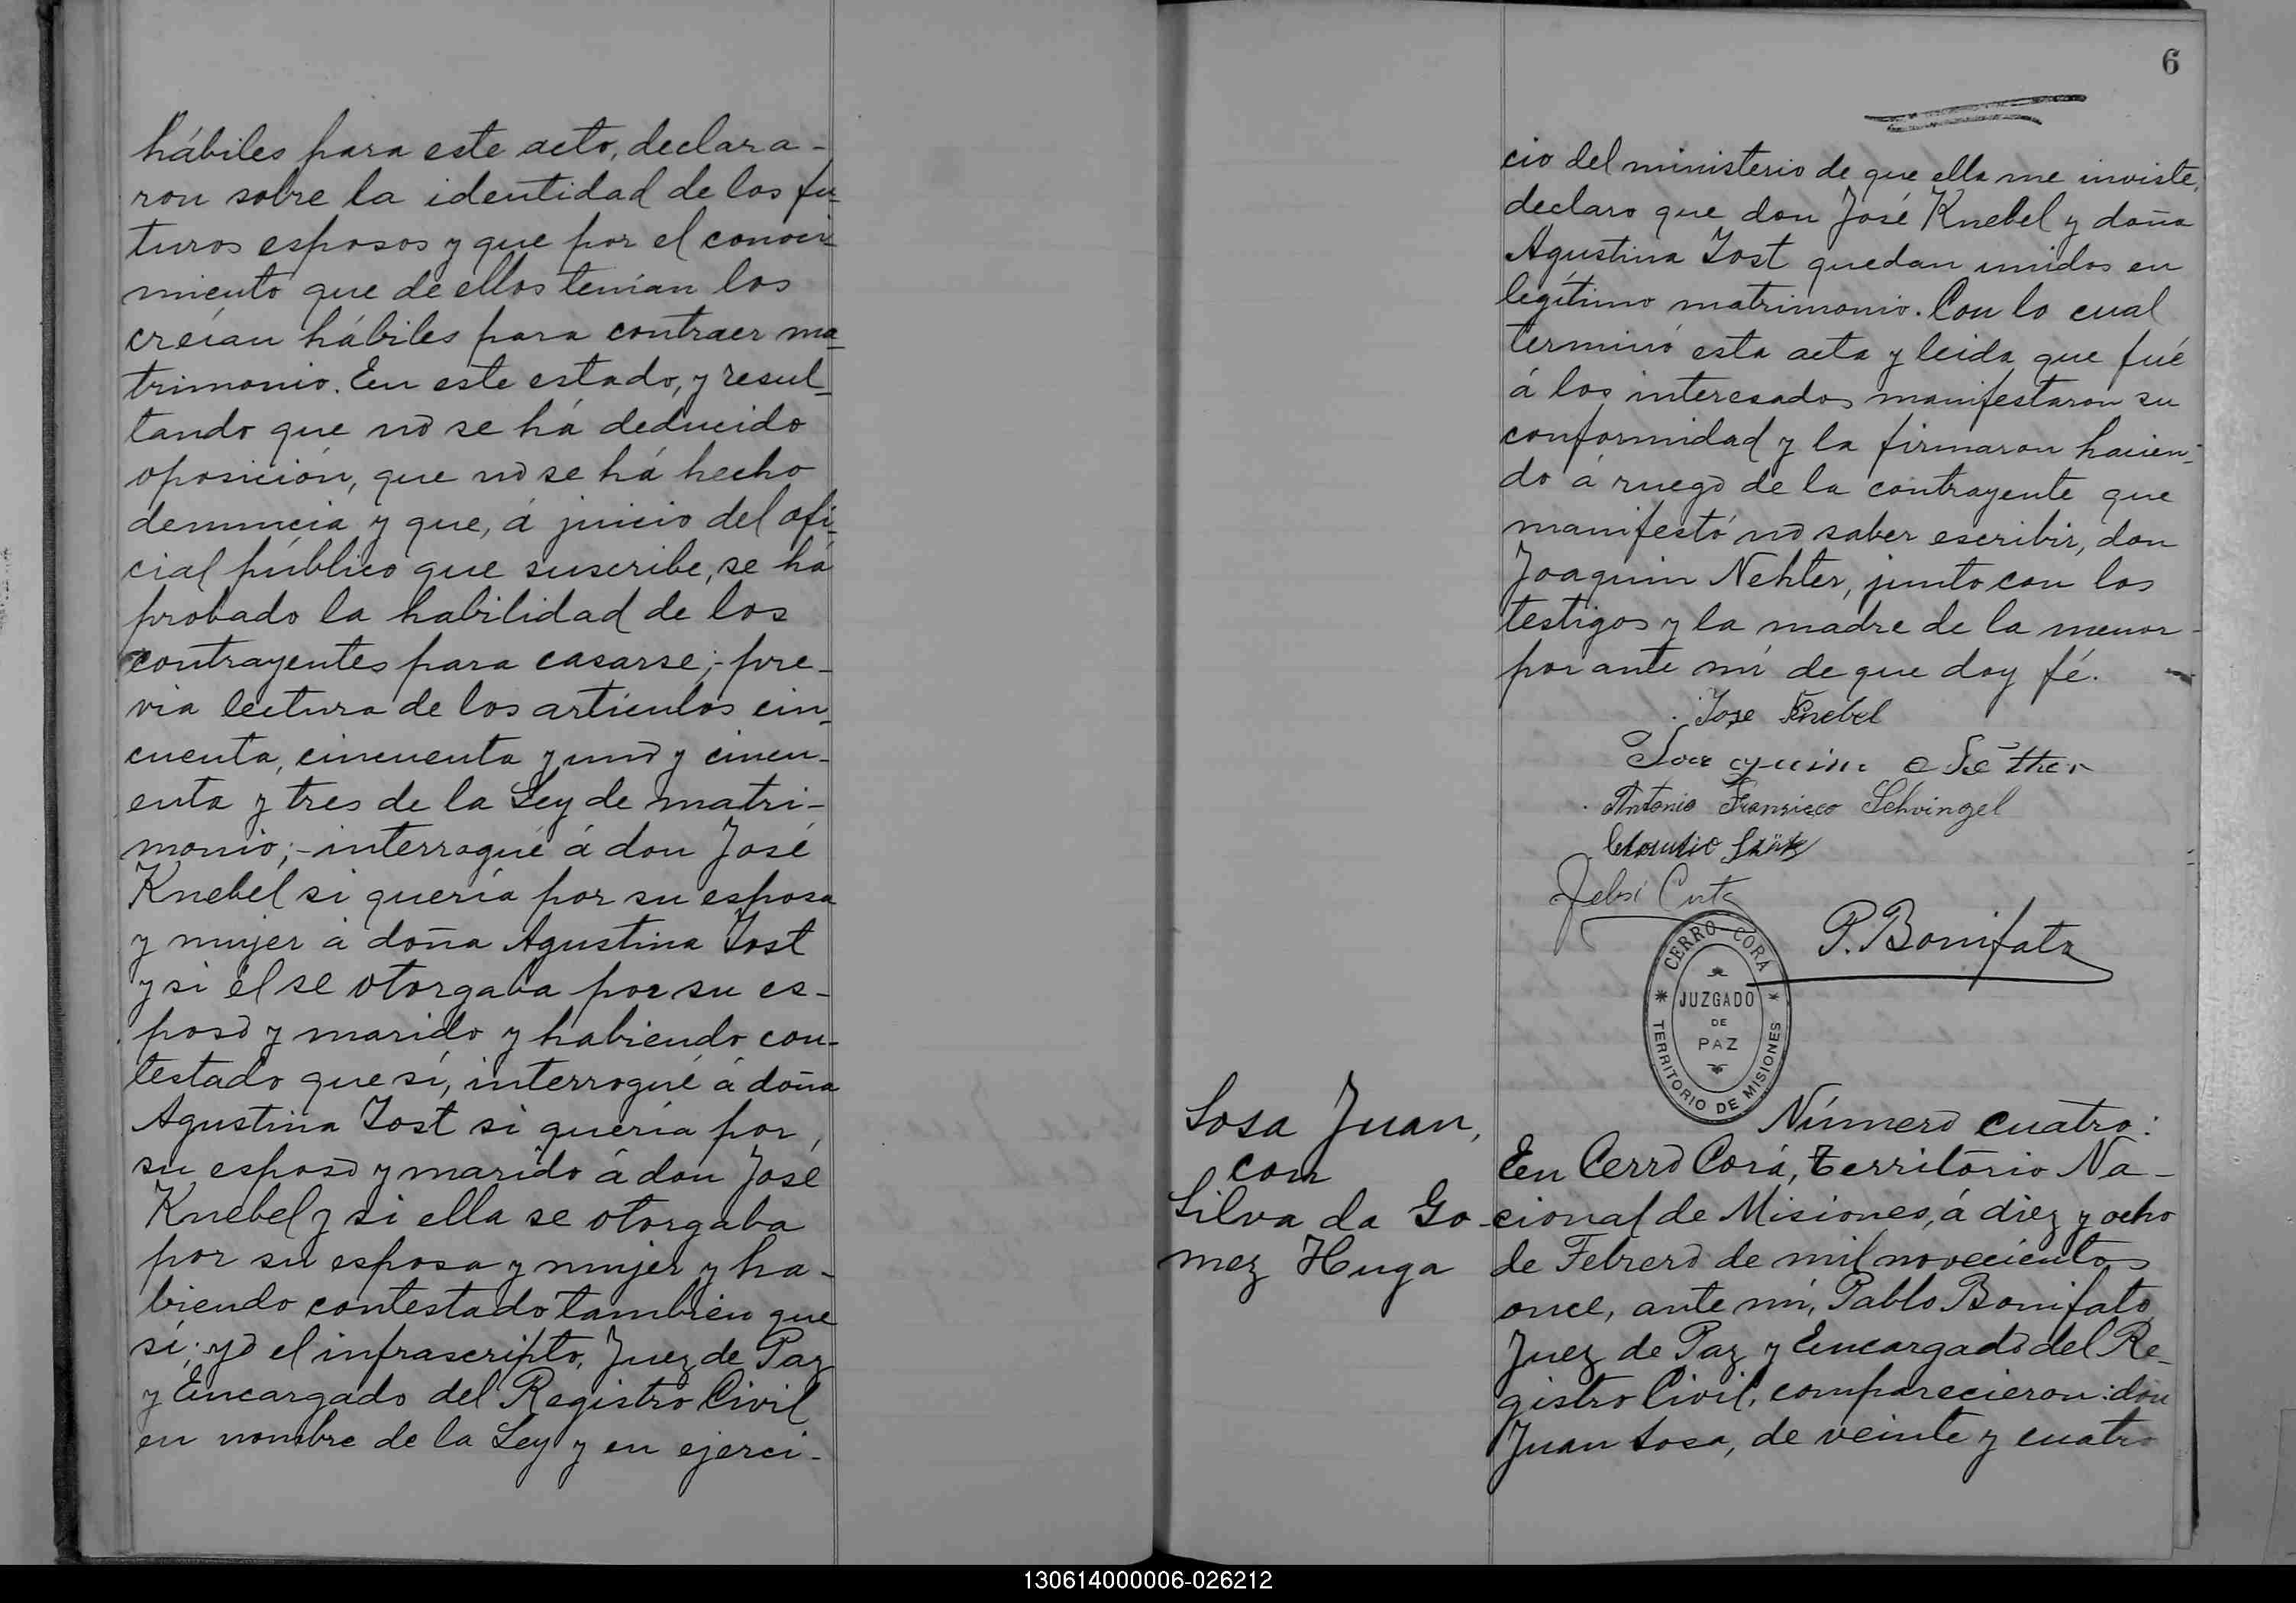 hábiles para este acto, declara-
ron sobre la identidad de los fu-
turos esposos y que por el conoci-
miento que de ellos tenían los
creían hábiles para contraer ma-
trimonio. En este estado, y resul-
tando que no se há deducido
oposición, que no se há hecho
denuncia y que, á juicio del ofi-
cial público que suscribe, se há
probado la habilidad de los
contrayentes para casarse;- pre-
via lectura de los artículos cin-
cuenta, cincuenta y uno y cincu-
enta y tres de la Ley de matri-
monio;- interrogué á don José
Knebel si quería por su esposa
y mujer á doña Agustina Yost
y si él se otorgaba por su es-
poso y marido y habiendo con-
testado que sí, interrogué á doña
Agustina Yost si quería por
su esposo y marido á don José
Knebel y si ella se otorgaba
por su esposa y mujer y ha-
biendo contestado también que
sí; yo el infrascripto, Juez de Paz
y Encargado del Registro Civil
en nombre de la Ley y en ejerci-
6
cio del ministerio de que ella me inviste,
declaro que don José Knebel y doña
Agustina Yost quedan unidos en
legítimo matrimonio. Con lo cual
terminó esta acta y leida que fué
á los interesados manifestaron su
conformidad y la firmaron hacien-
do á ruego de la contrayente que
manifestó no saber escribir, don
Joaquin Nehter, junto con los
testigos y la madre de la menor
por ante mí de que doy fé.
Jose Knebel
Joaquim
Antonio Fransisco Schvingel
P. Bonifato
CERRO CORÁ
JUZGADO
DE
PAZ
TERRITORIO DE MISIONES
Sosa Juan,
con
Silva da Go-
mez Huga
Número cuatro:
En Cerro Corá, territorio Na-
cional de Misiones, á diez y ocho
de Febrero de mil novecientos
once, ante mí, Pablo Bonifato,
Juez de Paz y Encargado del Re-
gistro Civil, comparecieron: don
Juan Sosa, de veinte y cuatro
130614000006-026212